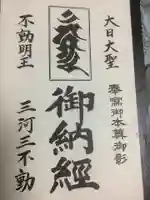 奉寫御本尊御影
大日大聖
御納經
不動明王
三河三不動